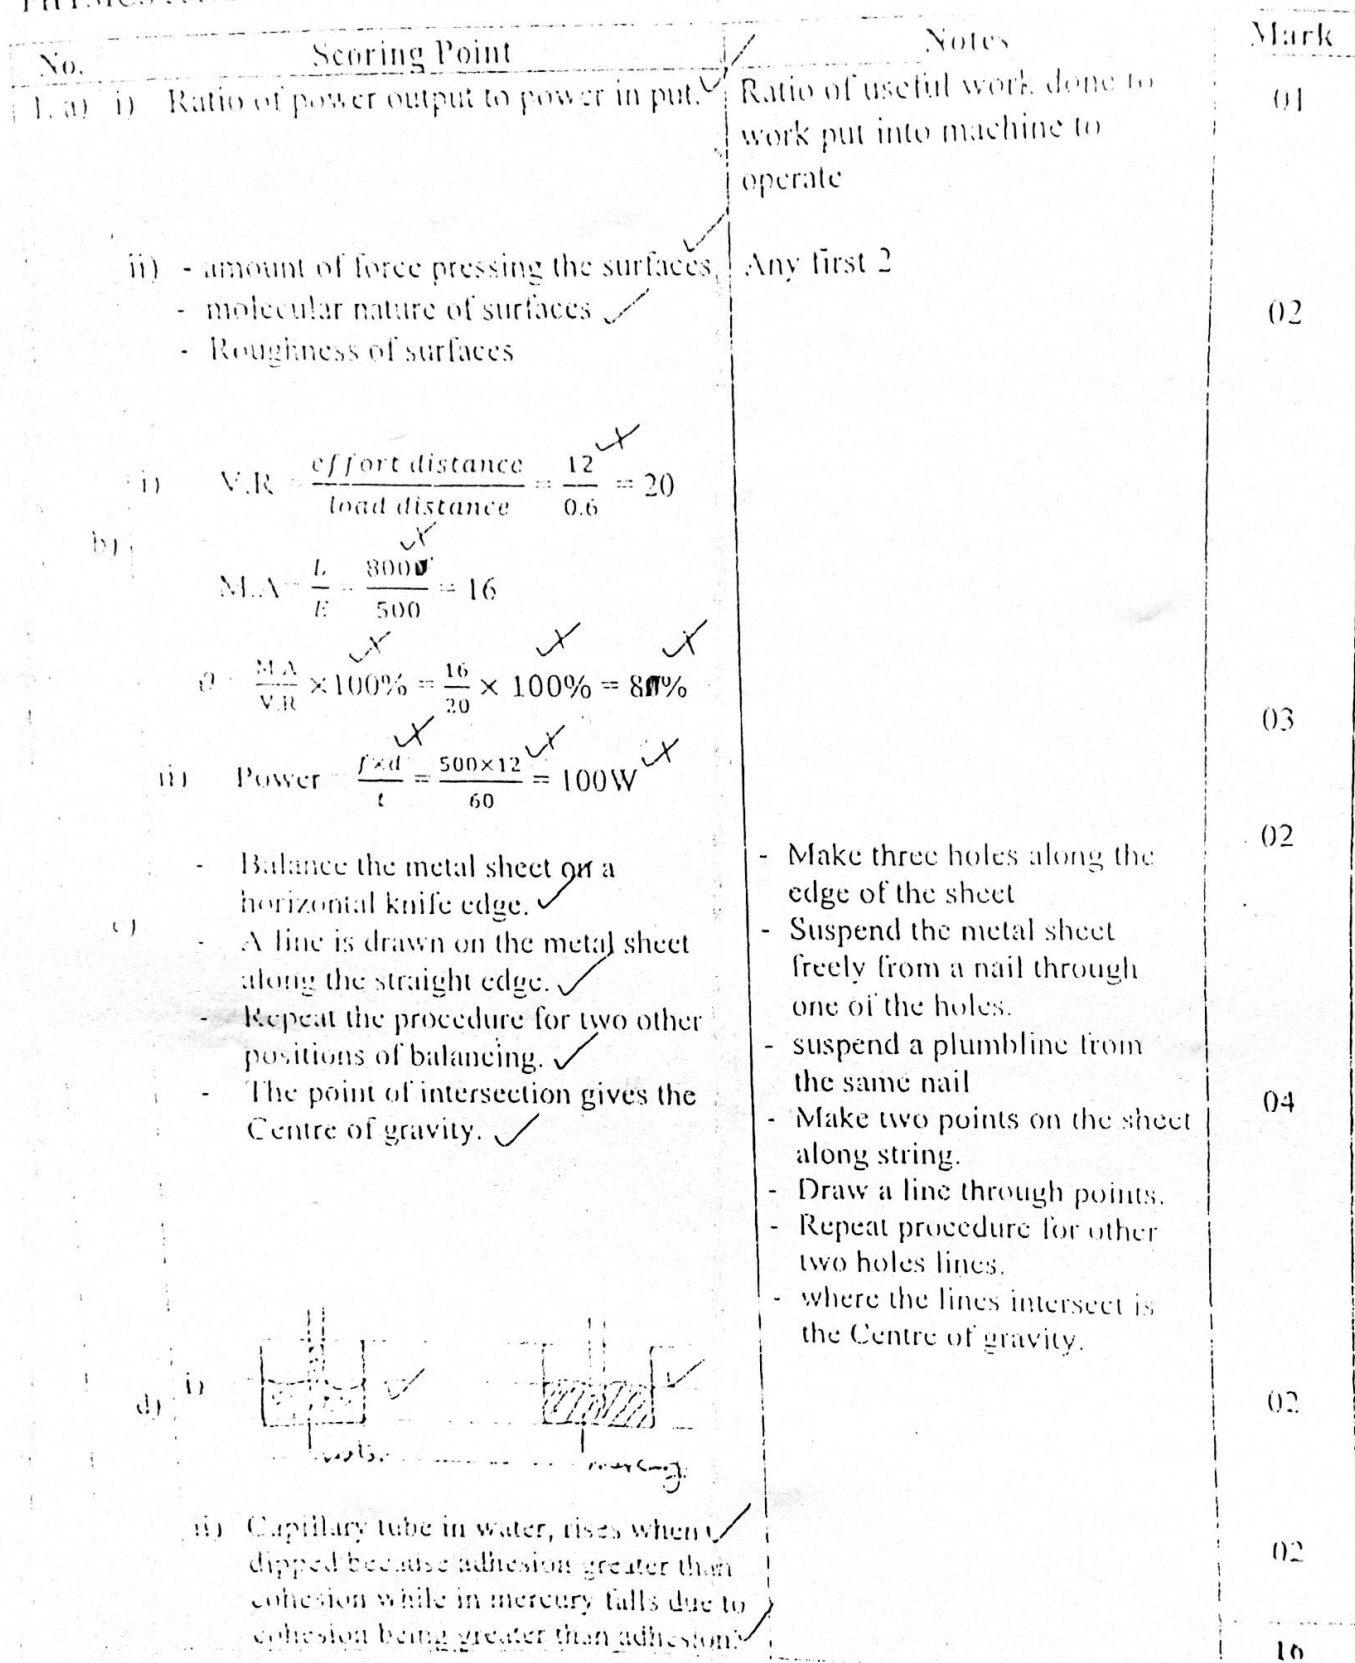 No. Scoring Point Notes Mark
1. a) i) Ratio of power output to power in put. Ratio of useful work done to 01
work put into machine to
operate
ii) - amount of force pressing the surfaces. Any first 2
- molecular nature of surfaces 02
- Roughness of surfaces
i) V.R = effort distance / load distance = 12 / 0.6 = 20
b)
M.A = L / E = 8000 / 500 = 16
M.A / V.R × 100% = 16 / 20 × 100% = 80%
03
ii) Power = f×d / t = 500×12 / 60 = 100W
02
c)
- Balance the metal sheet on a
horizontal knife edge.
- A line is drawn on the metal sheet
along the straight edge.
- Repeat the procedure for two other
positions of balancing.
- The point of intersection gives the
Centre of gravity.
- Make three holes along the
edge of the sheet
- Suspend the metal sheet
freely from a nail through
one of the holes.
- suspend a plumbline from
the same nail
- Make two points on the sheet
along string.
- Draw a line through points.
- Repeat procedure for other
two holes lines.
- where the lines intersect is
the Centre of gravity.
04
d) i) 02
mercury
ii) Capillary tube in water, rises when
dipped because adhesion greater than 02
cohesion while in mercury falls due to
cohesion being greater than adhesion.
16